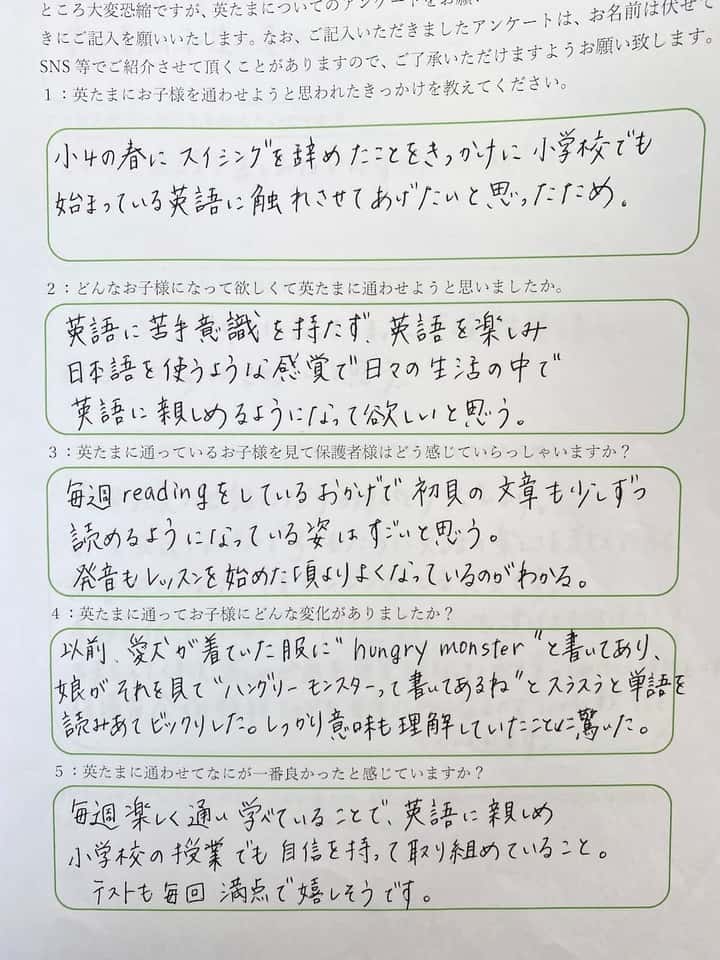 ところ大変恐縮ですが、英たまについてのアンケートをお願い
きにご記入を願いいたします。なお、ご記入いただきましたアンケートは、お名前は伏せて
SNS等でご紹介させて頂くことがありますので、ご了承いただけますようお願い致します。
1：英たまにお子様を通わせようと思われたきっかけを教えてください。
小4の春に スイミングを辞めたことをきっかけに 小学校でも
始まっている英語に触れさせてあげたいと思ったため。
2：どんなお子様になって欲しくて英たまに通わせようと思いましたか。
英語に苦手意識を持たず、英語を楽しみ
日本語を使うような感覚で日々の生活の中で
英語に親しめるようになって欲しいと思う。
3：英たまに通っているお子様を見て保護者様はどう感じていらっしゃいますか？
毎週readingをしているおかげで初見の文章も少しずつ
読めるようになっている姿はすごいと思う。
発音もレッスンを始めた頃よりよくなっているのがわかる。
4：英たまに通ってお子様にどんな変化がありましたか？
以前、愛犬が着ていた服に"hungry monster"と書いてあり、
娘がそれを見て"ハングリーモンスターって書いてあるね"とスラスラと単語を
読みあてビックリした。しっかり意味も理解していたことに驚いた。
5：英たまに通わせてなにが一番良かったと感じていますか？
毎週楽しく通い学べていることで、英語に親しめ
小学校の授業でも自信を持って取り組めていること。
テストも毎回満点で嬉しそうです。